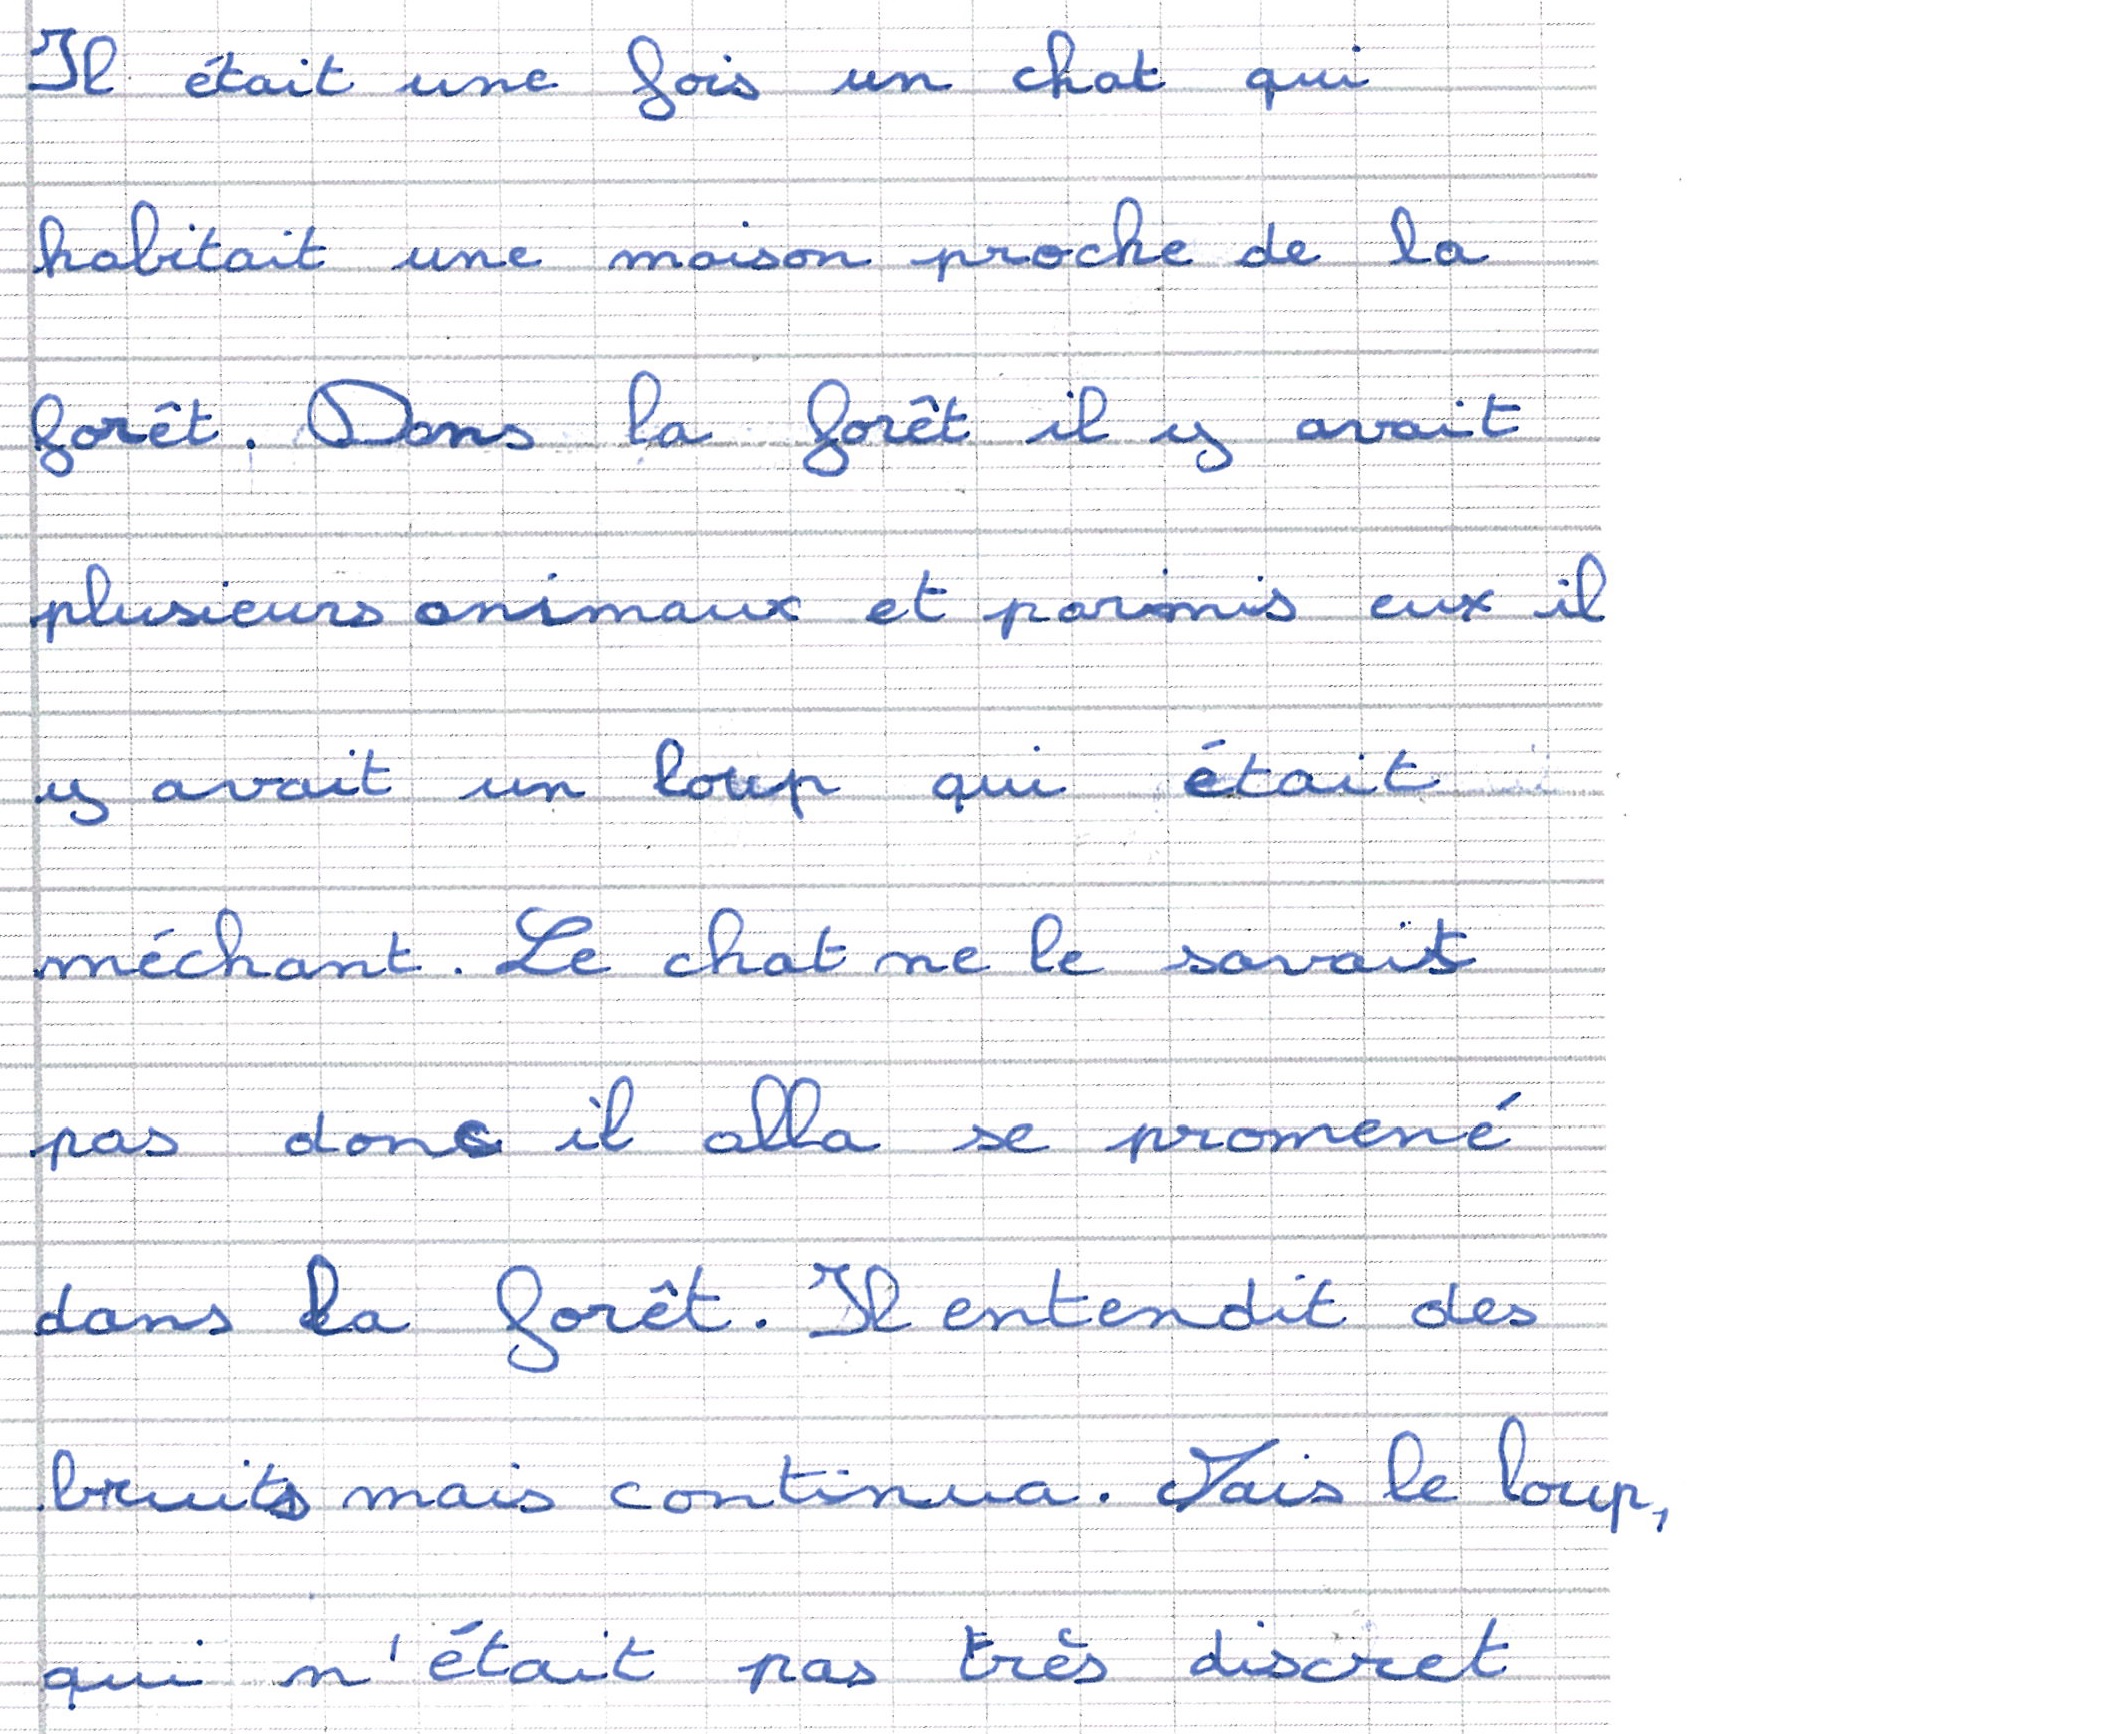 Il était une fois un chat qui
habitait une maison proche de la
forêt. Dans la forêt il y avait
plusieurs animaux et parimis eux il
y avait un loup qui était
méchant. Le chat ne le savait
pas donc il alla se promené
dans la forêt. Il entendit des
bruits mais continua. Mais le loup,
qui n'était pas très discret